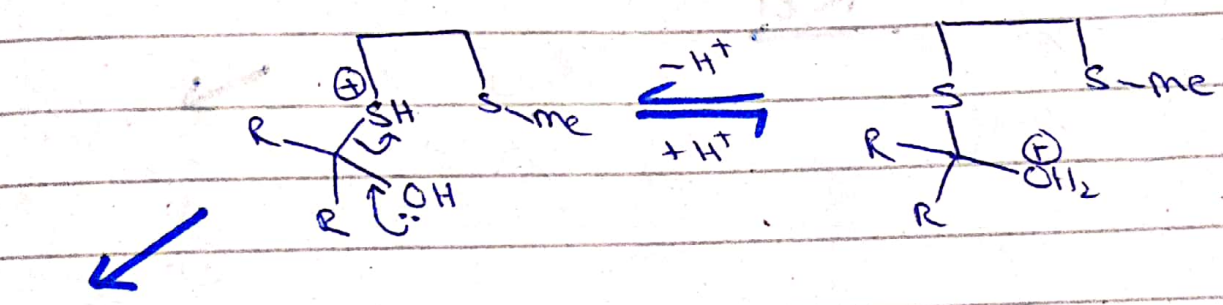 ⊕ SH S Me
R OH
R
-H⁺
+H⁺
S S-Me
R ⊕OH₂
R